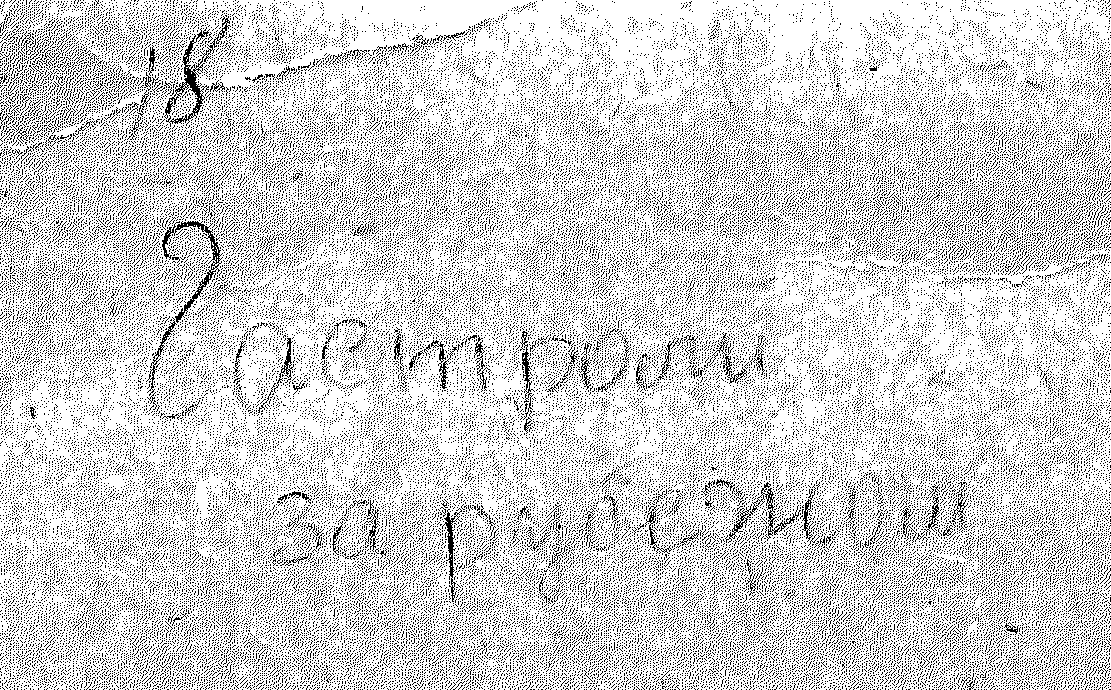 18
Гастроли
за рубежом